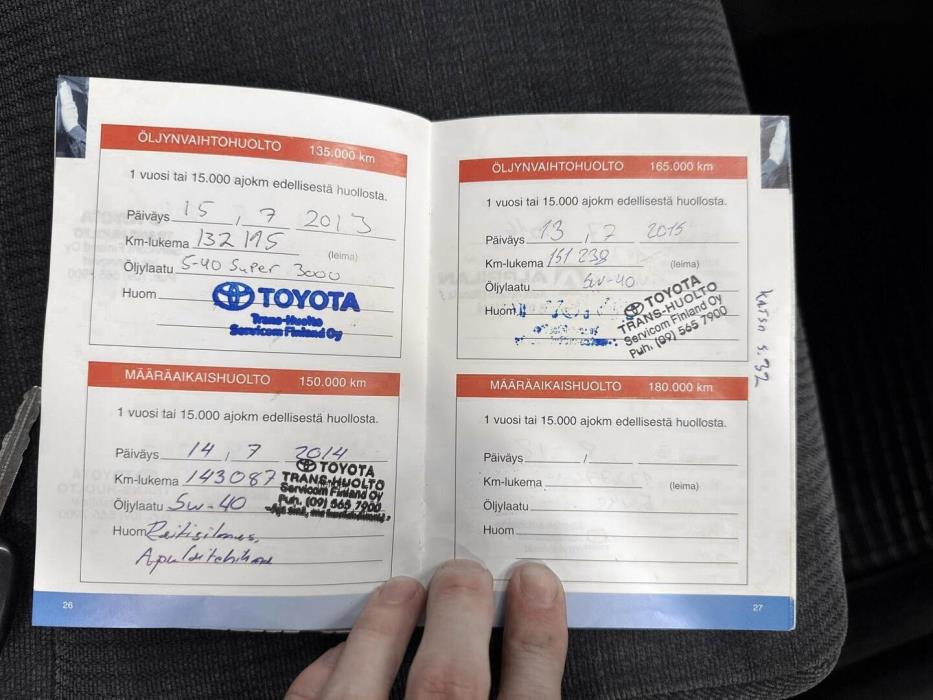 ÖLJYNVAIHTOHUOLTO 135.000 km
1 vuosi tai 15.000 ajokm edellisestä huollosta.
Päiväys 15 , 7 2013
Km-lukema 132 195
(leima)
Öljylaatu 5-40 Super 3000
Huom
TOYOTA
Trans-Huolto
Servicom Finland Oy
MÄÄRÄAIKAISHUOLTO 150.000 km
1 vuosi tai 15.000 ajokm edellisestä huollosta.
Päiväys 14 , 7 2014
Km-lukema 143087
Öljylaatu 5w-40
Huom
TOYOTA
TRANS-HUOLTO
Servicom Finland Oy
Puh. (09) 565 7900
26
ÖLJYNVAIHTOHUOLTO 165.000 km
1 vuosi tai 15.000 ajokm edellisestä huollosta.
Päiväys 13 , 7 2015
Km-lukema 151 238
(leima)
Öljylaatu 5w-40
Huom
TOYOTA
TRANS-HUOLTO
Servicom Finland Oy
Puh. (09) 565 7900
MÄÄRÄAIKAISHUOLTO 180.000 km
1 vuosi tai 15.000 ajokm edellisestä huollosta.
Päiväys /
Km-lukema
(leima)
Öljylaatu
Huom
27
KATSO s.32